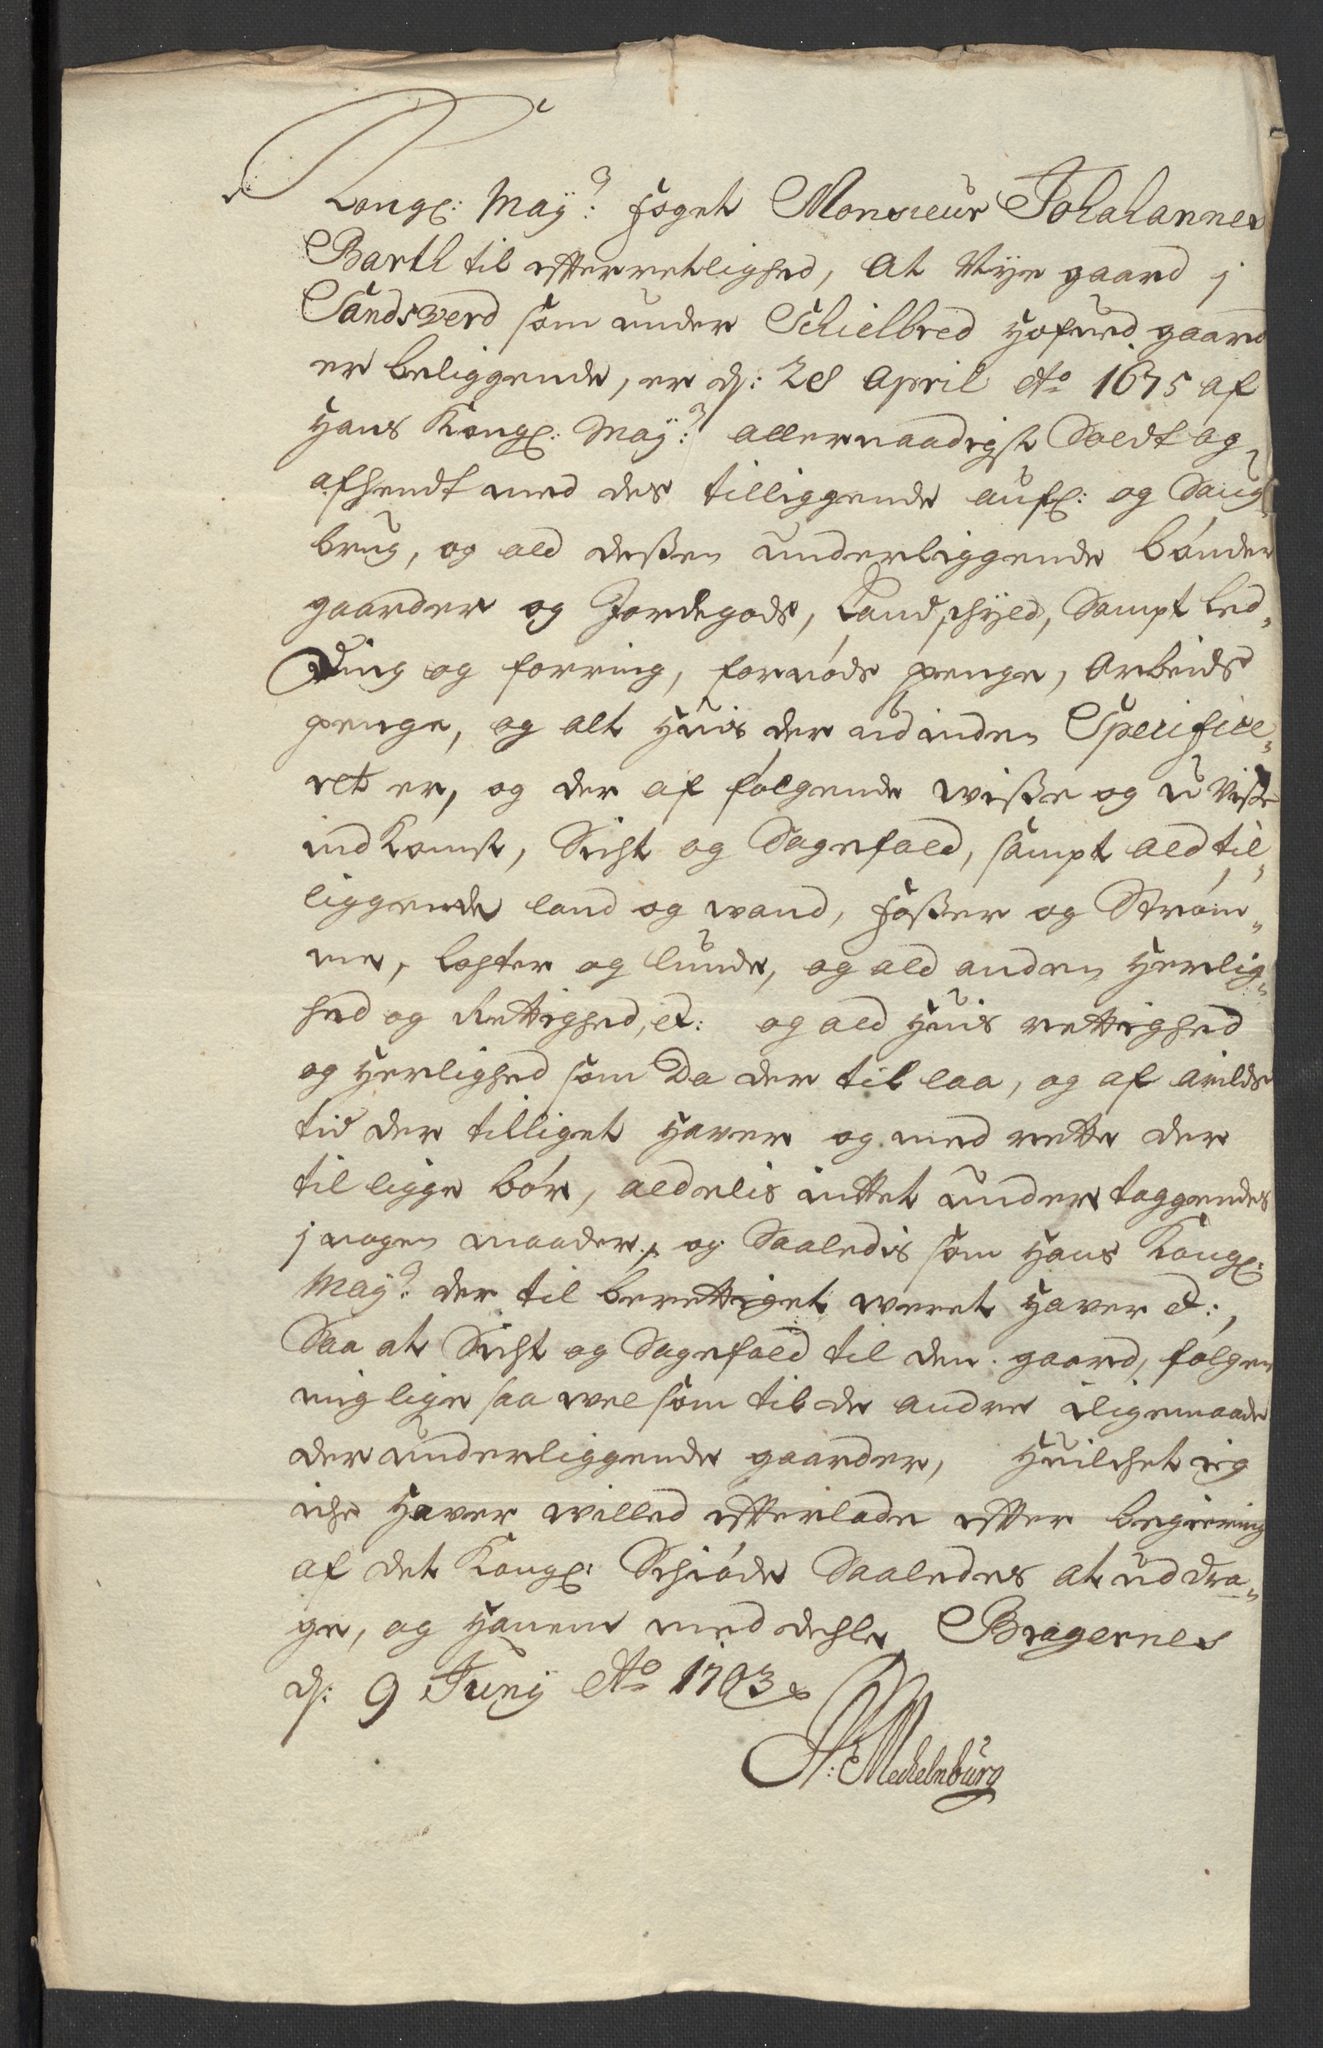 Kongl: May: foget Monsieur Johahannes
Barth til efterretlighed, at Mye gaard j
Sandsverd som under Schielbred Hofved gaard
er beliggende, er d: 28 April Ao 1675 af
Hans Kongl: May: allernaadigst Soldt og
afhendt med des tilliggende aufl: og Saug
brug, og ald dessen underliggende bönder
gaarder og Jordegods, Landschyld, Sampt Led„
ding og forring, fornöds penge, Arbeids
penge, og alt Huis der udinden Specifice„
ret er, og der af fölgende wisse og u Visse
indkomst, Sicht og Sagefald, sampt ald til„
liggende land og wand, fosser og Ström„
me, lohter og lunde, og ald anden Herlig„
hed og Rettighed, et: og ald Huis rettighed
og Herlighed som Da der til laa, og af arilds
tid der tilliget Haver og med rette der
til ligge bör, aldelis intet under taggendes
j nogen maader, og Saaledis som Hans Kongl:
May: der til berettiget weret Haver et:,
Saa at Sicht og Sagefald til den gaard, fölger
mig lige saa wel som til de andre iligemaade
der underliggende gaarder, Huilchet ieg
iche Haver willed efterlade efter begiering
af det Kongl: Schiöde Saaledes at uddra„
ge, og Hanem meddehle, Bragernes
d: 9 Junij Ao 1703
H: Mechelnburg